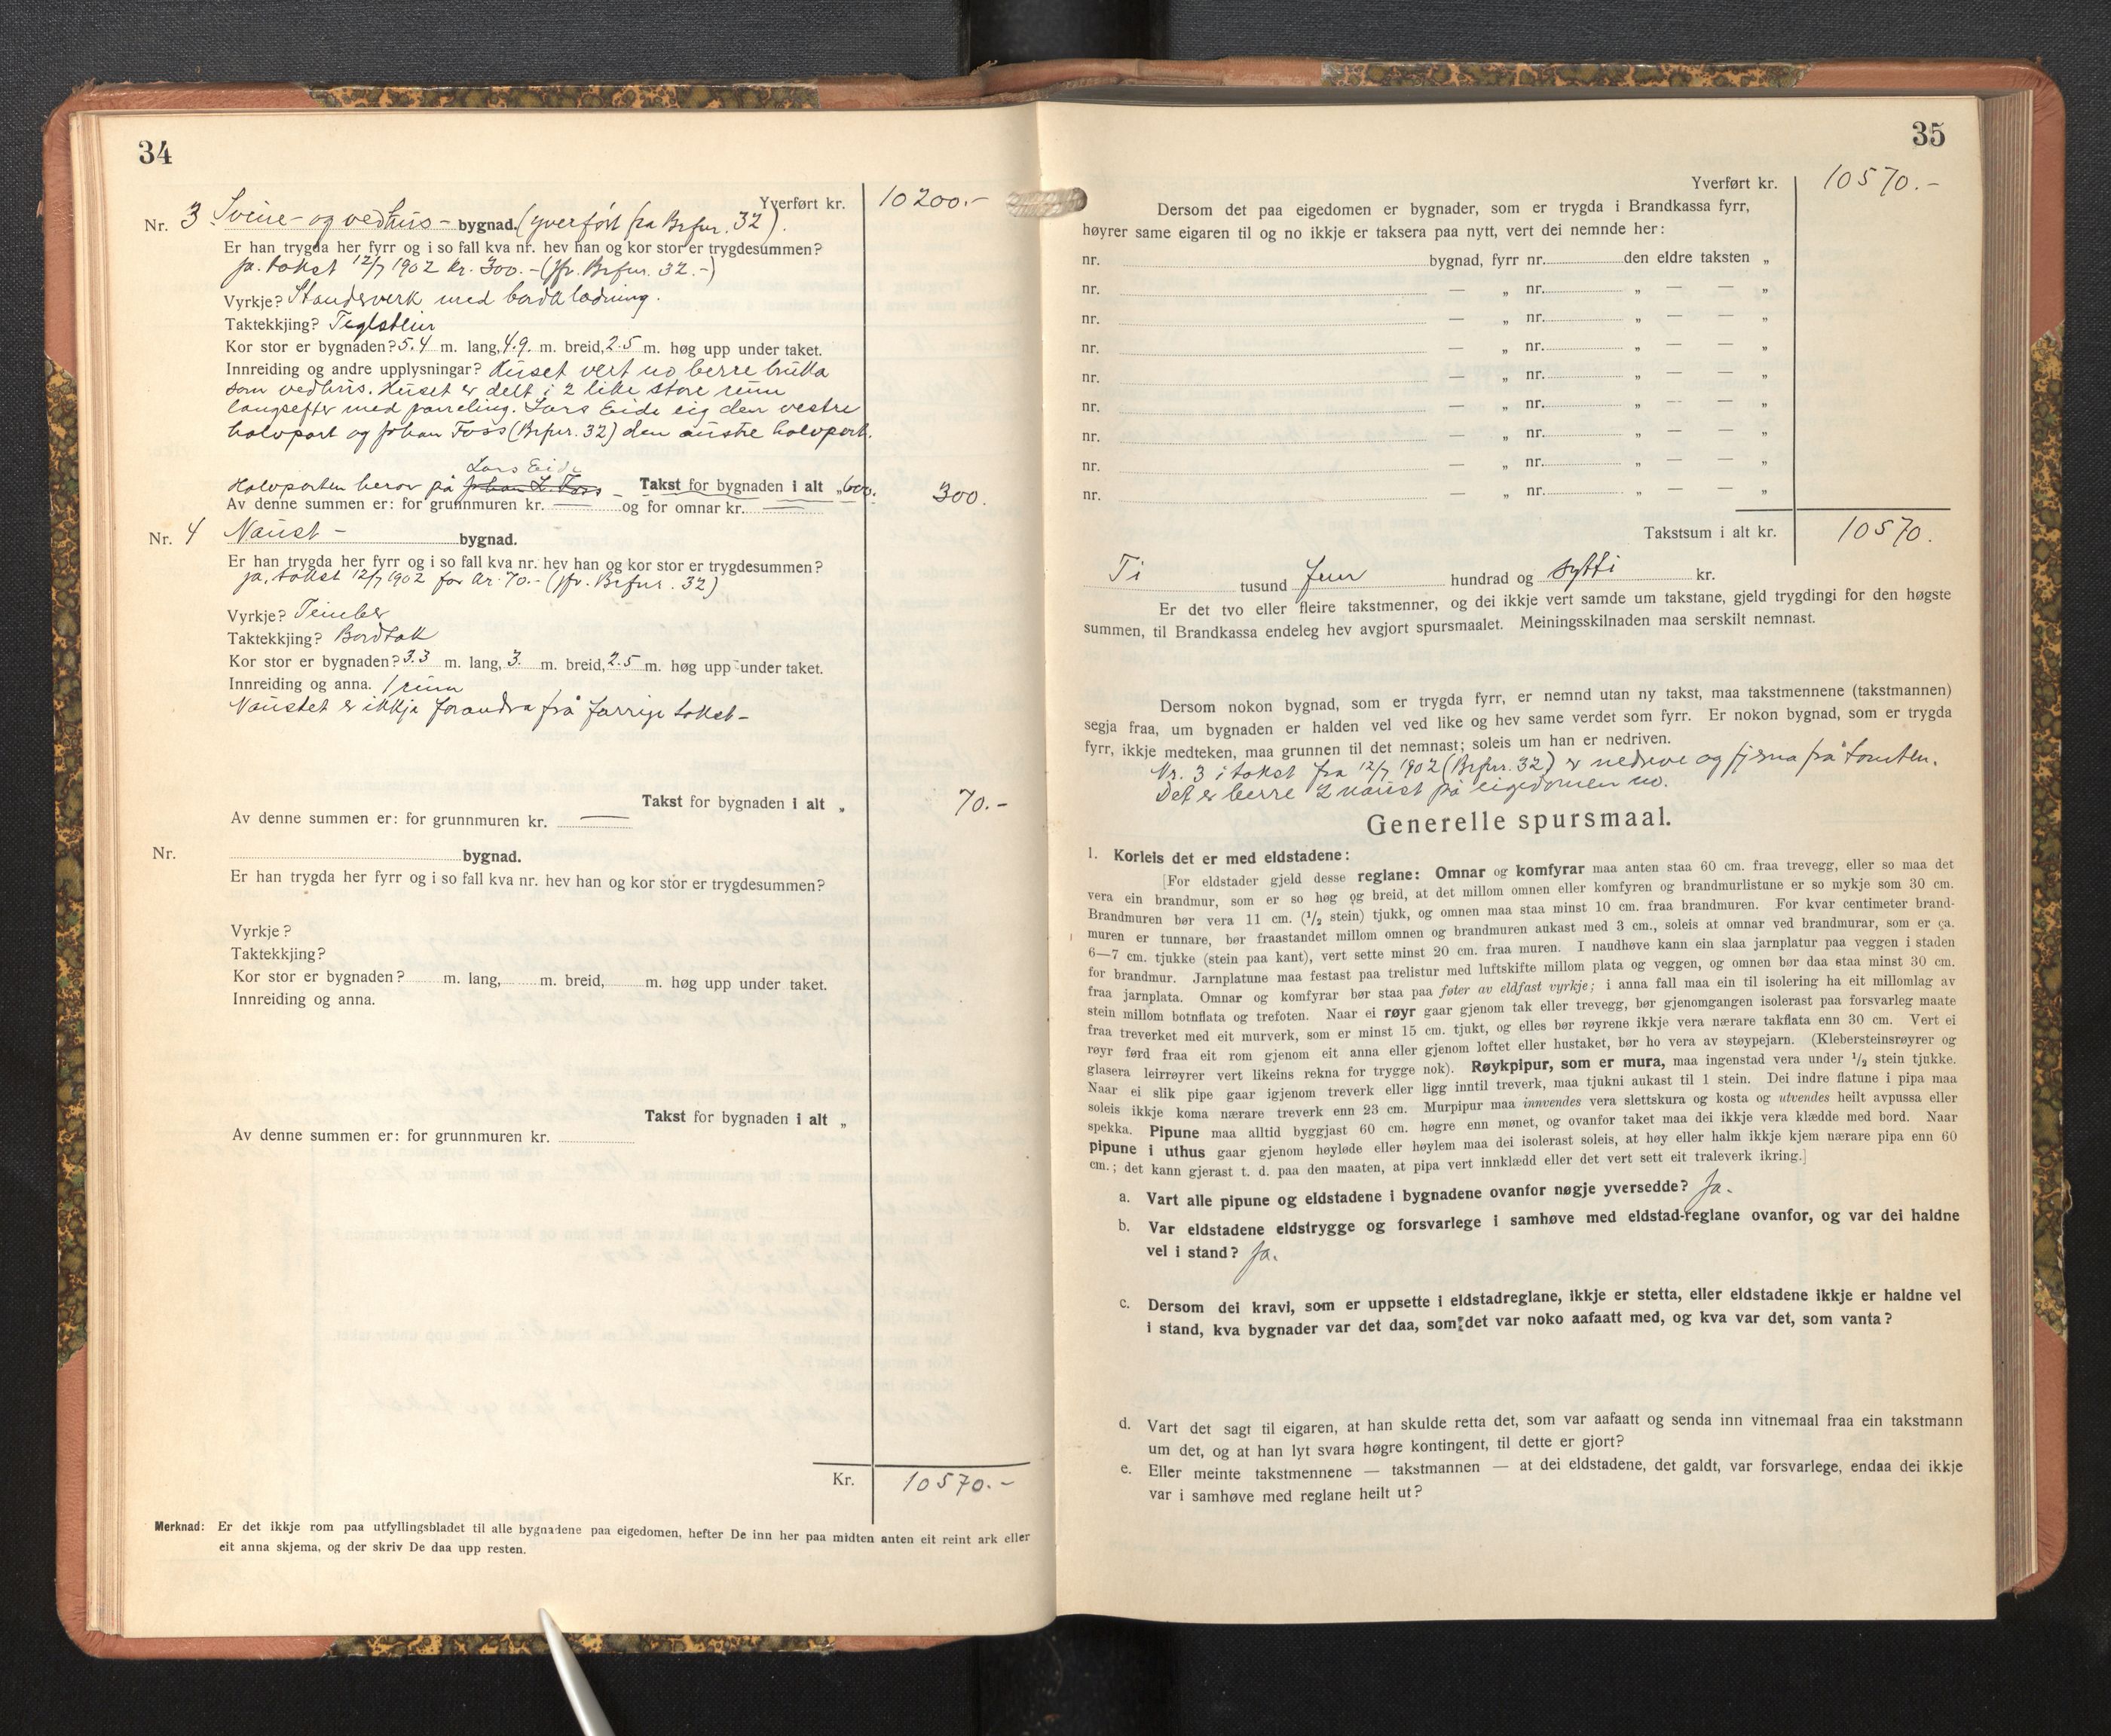 34
Yverført kr. 10200.-
Nr. 3 Svine- og vedhus- bygnad. (yverført fra Brfnr. 32).
Er han trygda her fyrr og i so fall kva nr. hev han og kor stor er trygdesummen?
ja. takst 12/7 1902 kr. 300.- (jfr. Brfnr. 32.-)
Vyrkje? Standsverk med bordkledning.
Taktekkjing? Teglstein
Kor stor er bygnaden? 5.4 m. lang, 4.9. m. breid, 2.5 m. høg upp under taket.
Innreiding og andre upplysningar? Huset vert no berre bruka
som vedhus. Huset er delt i 2 like store rum
langsefter med panneling. Lars Eide eig den vestre
halvpart og Johan Foss (Brfnr. 32) den austre halvpart.
Lars Eide
Halvparten herav på Johan L. Foss - Takst for bygnaden i alt „ 600. 300.
Av denne summen er: for grunnmuren kr. — og for omnar kr. —
Nr. 4 Naust - bygnad.
Er han trygda her fyrr og i so fall kva nr. hev han og kor stor er trygdesummen?
ja, takst 12/7 1902 for kr. 70.- (jfr. Brfnr. 32)
Vyrkje? Timber
Taktekkjing? Bordtak
Kor stor er bygnaden? 3.3 m. lang, 3. m. breid, 2.5 m. høg upp under taket.
Innreiding og anna. 1 rum
Naustet er ikkje forandra frå forrige takst -
Takst for bygnaden i alt „ 70.-
Av denne summen er: for grunnmuren kr. —
Nr. bygnad.
Er han trygda her fyrr og i so fall kva nr. hev han og kor stor er trygdesummen?
Vyrkje?
Taktekkjing?
Kor stor er bygnaden? m. lang, m. breid, m. høg upp under taket.
Innreiding og anna.
Takst for bygnaden i alt „
Av denne summen er: for grunnmuren kr.
Kr. 10570.-
Merknad: Er det ikkje rom paa utfyllingsbladet til alle bygnadene paa eigedomen, hefter De inn her paa midten anten eit reint ark eller
eit anna skjema, og der skriv De daa upp resten.
35
Yverført kr. 10570.-
Dersom det paa eigedomen er bygnader, som er trygda i Brandkassa fyrr,
høyrer same eigaren til og no ikkje er taksera paa nytt, vert dei nemnde her:
nr. bygnad, fyrr nr. den eldre taksten „
nr. — „ nr. „ — — „
nr. — „ nr. „ — — „
nr. — „ nr. „ — — „
nr. — „ nr. „ — — „
nr. — „ nr. „ — — „
nr. — „ nr. „ — — „
nr. — „ nr. „ — — „
nr. — „ nr. „ — — „
Takstsum i alt kr. 10570.
Ti tusund fem hundrad og sytti kr.
Er det tvo eller fleire takstmenner, og dei ikkje vert samde um takstane, gjeld trygdingi for den høgste
summen, til Brandkassa endeleg hev avgjort spursmaalet. Meiningsskilnaden maa serskilt nemnast.
Dersom nokon bygnad, som er trygda fyrr, er nemnd utan ny takst, maa takstmennene (takstmannen)
segja fraa, um bygnaden er halden vel ved like og hev same verdet som fyrr. Er nokon bygnad, som er trygda
fyrr, ikkje medteken, maa grunnen til det nemnast; soleis um han er nedriven.
Nr. 3 i takst fra 12/7 1902 (Brfnr. 32) er nedrive og fjerna frå tomten.
Det er berre 2 naust på eigedomen no.
Generelle spursmaal.
1. Korleis det er med eldstadene:
[For eldstader gjeld desse reglane: Omnar og komfyrar maa anten staa 60 cm. fraa trevegg, eller so maa det
vera ein brandmur, som er so høg og breid, at det millom omnen eller komfyren og brandmurlistune er so mykje som 30 cm.
Brandmuren bør vera 11 cm. (1/2 stein) tjukk, og omnen maa staa minst 10 cm. fraa brandmuren. For kvar centimeter brand-
muren er tunnare, bør fraastandet millom omnen og brandmuren aukast med 3 cm., soleis at omnar ved brandmurar, som er ca.
6—7 cm. tjukke (stein paa kant), vert sette minst 20 cm. fraa muren. I naudhøve kann ein slaa jarnplatur paa veggen i staden
for brandmur. Jarnplatune maa festast paa trelistur med luftskifte millom plata og veggen, og omnen bør daa staa minst 30 cm.
fraa jarnplata. Omnar og komfyrar bør staa paa føter av eldfast vyrkje; i anna fall maa ein til isolering ha eit millomlag av
stein millom botnflata og trefoten. Naar ei røyr gaar gjenom tak eller trevegg, bør gjenomgangen isolerast paa forsvarleg maate
fraa treverket med eit murverk, som er minst 15 cm. tjukt, og elles bør røyrene ikkje vera nærare takflata enn 30 cm. Vert ei
røyr førd fraa eit rom gjenom eit anna eller gjenom loftet eller hustaket, bør ho vera av støypejarn. (Klebersteinsrøyrer og
glasera leirrøyrer vert likeins rekna for trygge nok). Røykpipur, som er mura, maa ingenstad vera under 1/2 stein tjukke.
Naar ei slik pipe gaar igjenom treverk eller ligg inntil treverk, maa tjukni aukast til 1 stein. Dei indre flatune i pipa maa
soleis ikkje koma nærare treverk enn 23 cm. Murpipur maa innvendes vera slettskura og kosta og utvendes heilt avpussa eller
spekka. Pipune maa alltid byggjast 60 cm. høgre enn mønet, og ovanfor taket maa dei ikkje vera klædde med bord. Naar
pipune i uthus gaar gjenom høyløde eller høylem maa dei isolerast soleis, at høy eller halm ikkje kjem nærare pipa enn 60
cm.; det kann gjerast t. d. paa den maaten, at pipa vert innklædd eller det vert sett eit traleverk ikring.]
a. Vart alle pipune og eldstadene i bygnadene ovanfor nøgje yversedde? Ja.
b. Var eldstadene eldstrygge og forsvarlege i samhøve med eldstad-reglane ovanfor, og var dei haldne
vel i stand? Ja.
c. Dersom dei kravi, som er uppsette i eldstadreglane, ikkje er stetta, eller eldstadene ikkje er haldne vel
i stand, kva bygnader var det daa, som det var noko aafaatt med, og kva var det, som vanta?
d. Vart det sagt til eigaren, at han skulde retta det, som var aafaatt og senda inn vitnemaal fraa ein takstmann
um det, og at han lyt svara høgre kontingent, til dette er gjort?
e. Eller meinte takstmennene — takstmannen — at dei eldstadene, det galdt, var forsvarlege, endaa dei ikkje
var i samhøve med reglane heilt ut?